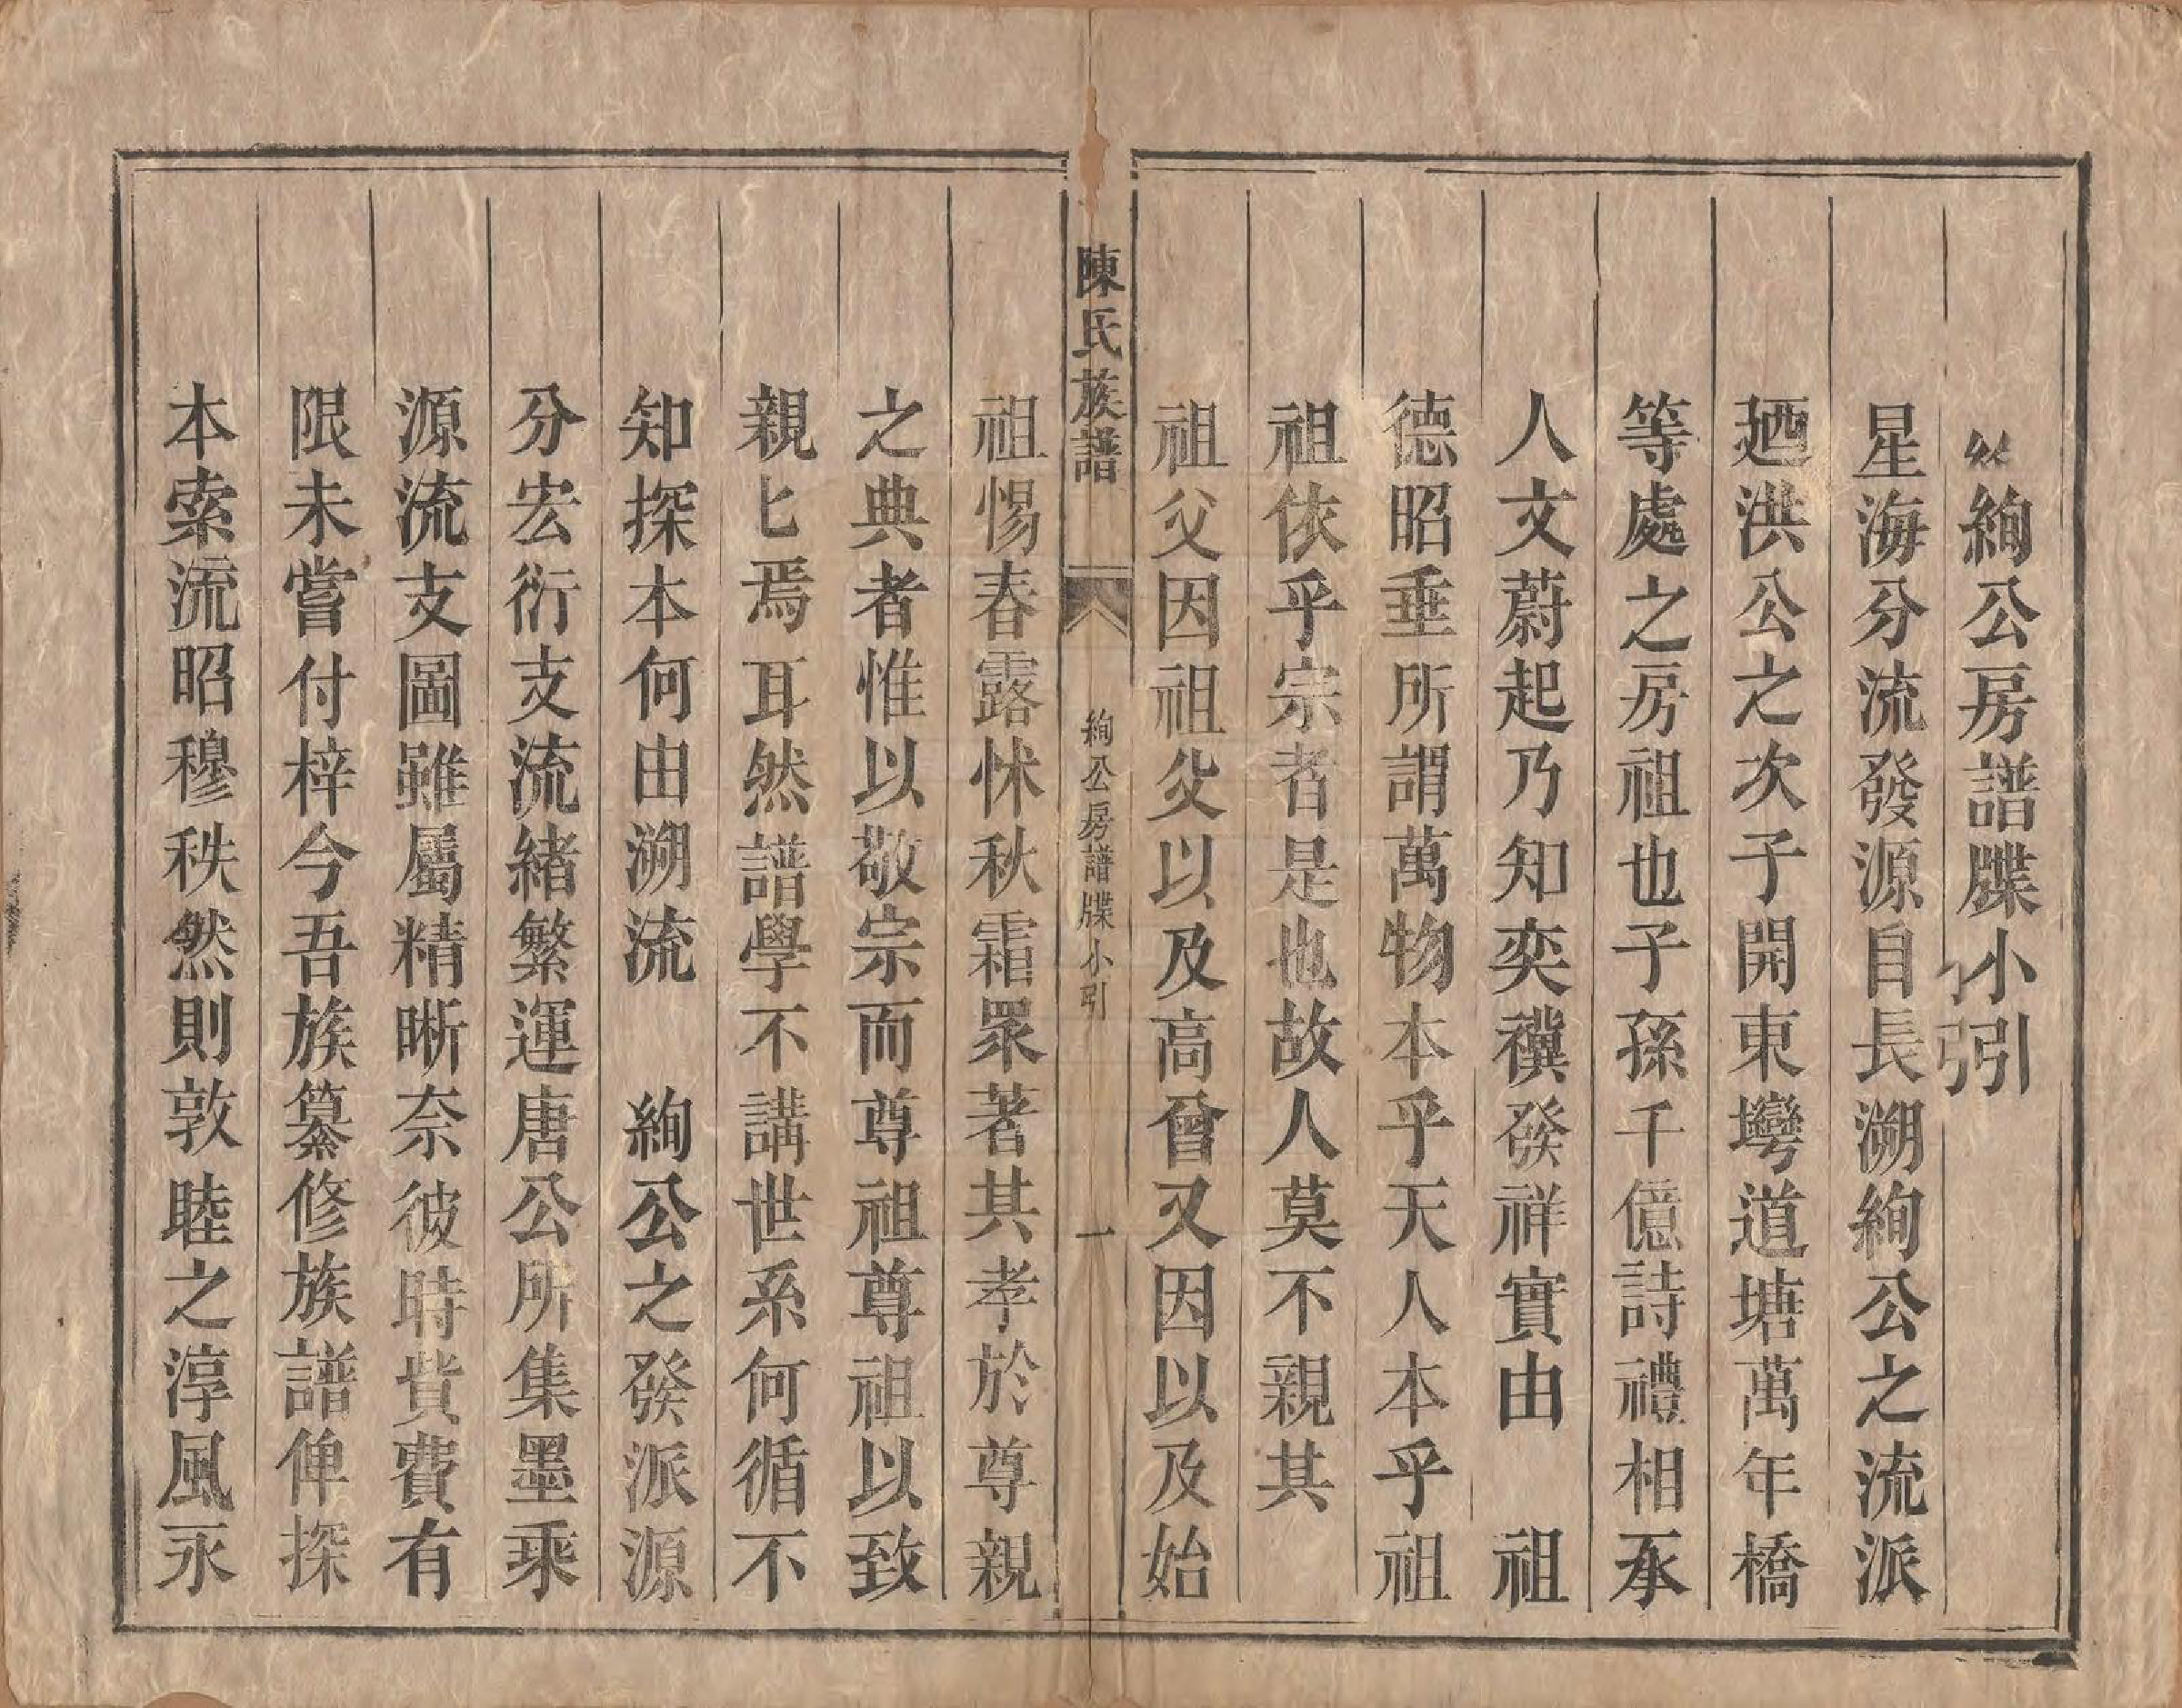 絢公房譜牒小引
星海分流發源自長溯絢公之流派
廼洪公之次子開東壪道塘萬年橋
等處之房祖也子孫千億詩禮相承
人文蔚起乃知奕禩發祥實由　祖
德昭垂所謂萬物本乎天人本乎祖
祖依乎宗者是也故人莫不親其
祖父因祖父以及高曾又因以及始
陳氏族譜　絢公房譜牒小引　一
祖惕春露怵秋霜眾著其孝於尊親
之典者惟以敬宗而尊祖尊祖以致
親匕焉耳然譜學不講世系何循不
知探本何由溯流　絢公之發派源
分宏衍支流緒繁運唐公所集墨乘
源流支圖雖屬精晰奈彼時貲費有
限未嘗付梓今吾族纂修族譜俾探
本索流昭穆秩然則敦睦之淳風永